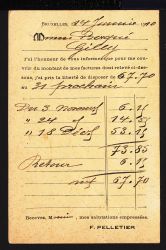 BRUXELLES, 24 Janvier 1910
M
Gilly
J'ai l'honneur de vous informer que pour me couvrir du montant de mes factures dont relevé ci-dessous, j'ai pris la liberté de disposer de 67.70
au 31 prochain
Du 3 Novemb 6.
" 24 d° 14.
" 18 Déc 53.
73.85
Retour 6.15
net 67.70
Recevez, M, mes salutations empressées.
F. PELLETIER